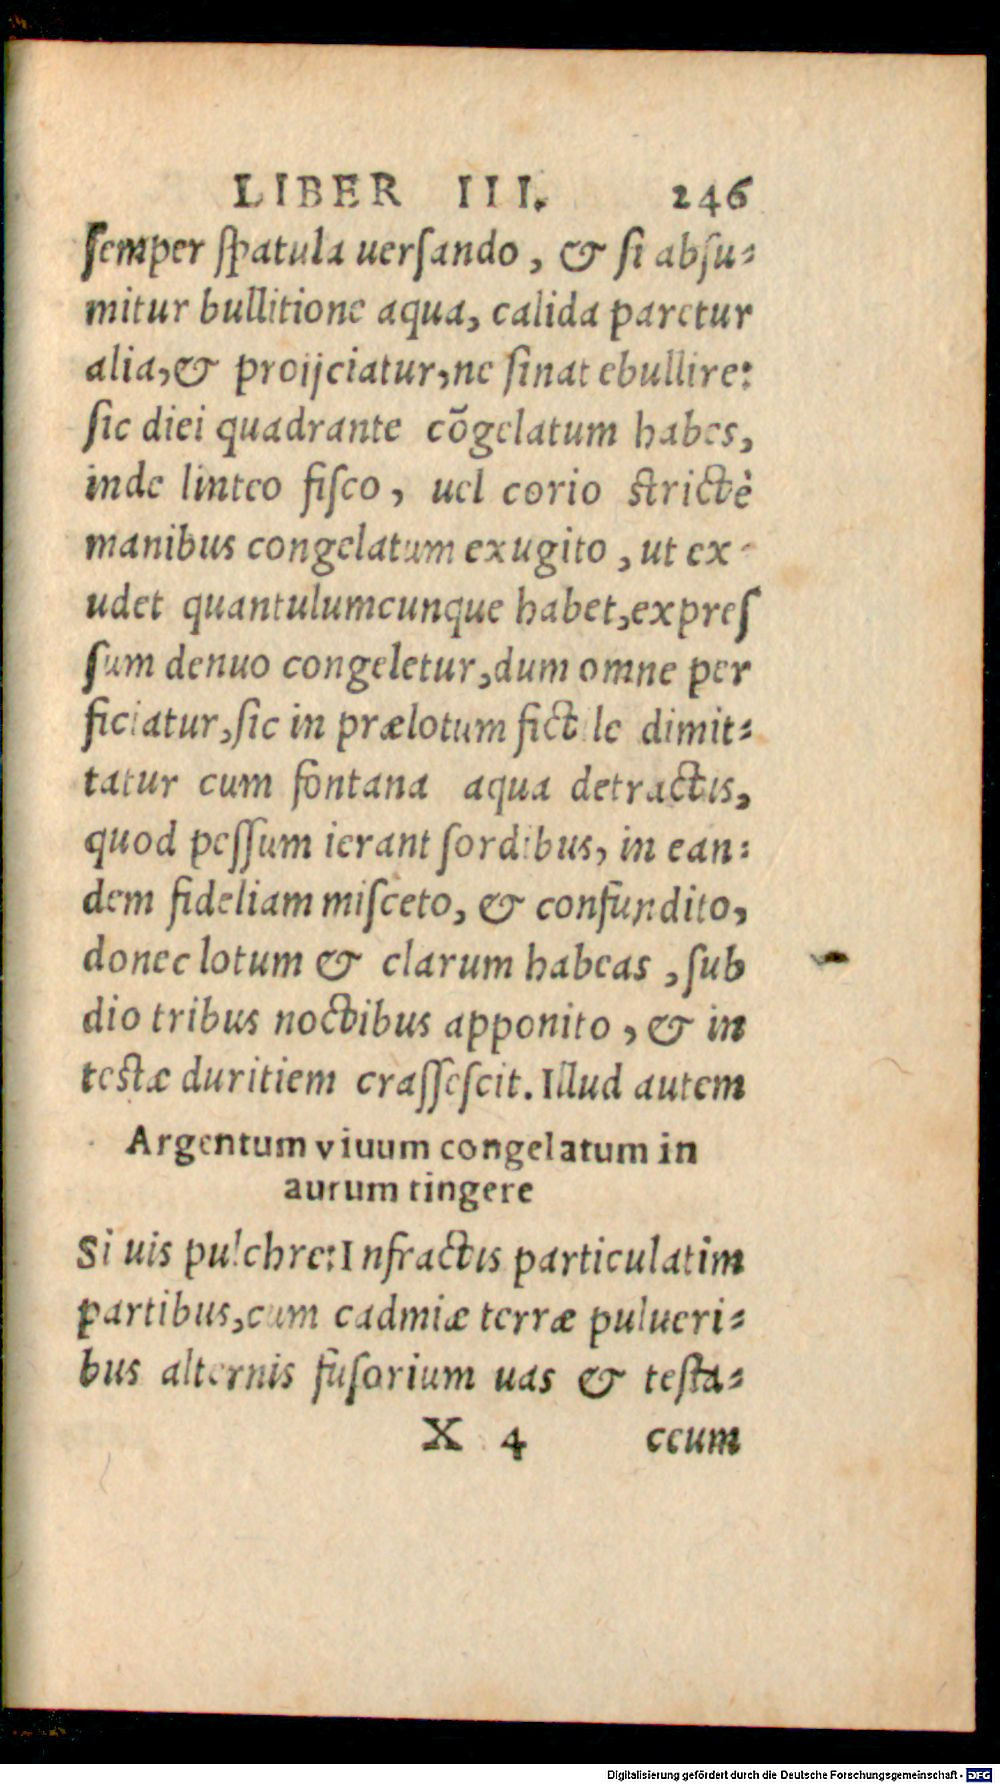 LIBER III. 246
semper spatula uersando, & si absu-
mitur bullitione aqua, calida paretur
alia, & proijciatur, ne sinat ebullire:
sic diei quadrante cōgelatum habes,
inde linteo fisco, uel corio strictè
manibus congelatum exugito, ut ex-
udet quantulumcunque habet, expres
sum denuo congeletur, dum omne per
ficiatur, sic in prælotum fictile dimit-
tatur cum fontana aqua detractis,
quod pessum ierant sordibus, in ean-
dem fideliam misceto, & confundito,
donec lotum & clarum habeas, sub
dio tribus noctibus apponito, & in
testæ duritiem crassescit. Illud autem
Argentum viuum congelatum in
aurum tingere
Si uis pulchre: Infractis particulatim
partibus, cum cadmiæ terræ pulueri-
bus alternis fusorium uas & testa-
X 4 ceum
Digitalisierung gefördert durch die Deutsche Forschungsgemeinschaft - DFG